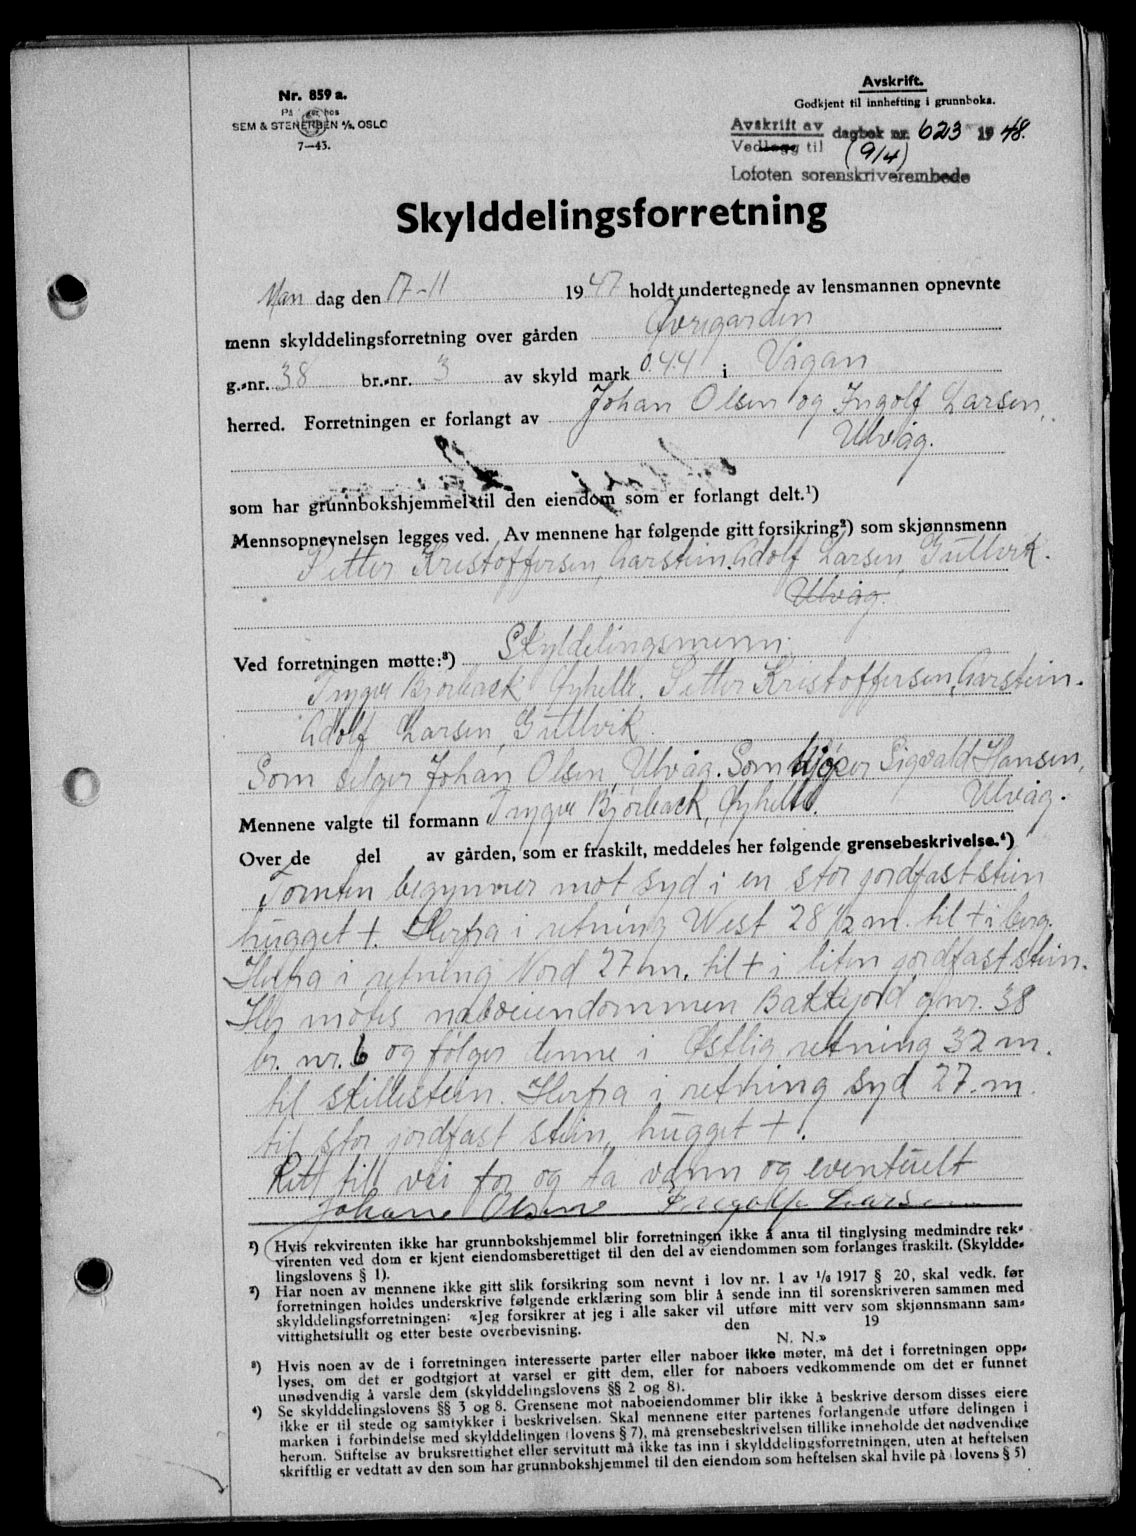 Nr. 859 a.
På lager hos
SEM & STENERSEN A/S, OSLO
7—43.
Avskrift.
Godkjent til innhefting i grunnboka.
Avskrift av dagbok nr. 623 1948.
Vedlegg til (9/4)
Lofoten sorenskriverembede
Skylddelingsforretning
Man dag den 17-11 1947 holdt undertegnede av lensmannen opnevnte
menn skylddelingsforretning over gården Øvregarden
g.-nr. 38 br.-nr. 3 av skyld mark 0.44 i Vågan
herred. Forretningen er forlangt av Johan Olsen og Ingolf Larsen,
Ulvåg.
som har grunnbokshjemmel til den eiendom som er forlangt delt.¹)
Mennsopnevnelsen legges ved. Av mennene har følgende gitt forsikring²) som skjønnsmenn
Petter Kristoffersen, Aarstein. Adolf Larsen, Gullvik.
Ulvåg.
Ved forretningen møtte:³) Skyldelingsmenn.
Trygve Bjørback Øyhelle. Petter Kristoffersen, Aarstein.
Adolf Larsen, Gullvik.
Som selger Johan Olsen, Ulvåg. Som kjøper Sigvald Hansen,
Ulvåg.
Mennene valgte til formann Trygve Bjørback, Øyhelle.
Over de del av gården, som er fraskilt, meddeles her følgende grensebeskrivelse.⁴)
Tomten begynner mot syd i en stor jordfast stein
hugget +. Herfra i retning West 28 1/2 m. til + i berg.
Herfra i retning Nord 27 m. til + i liten jordfast stein.
Her møtes naboeiendommen Bakkejord g.nr. 38
br. nr. 6 og følger denne i Østlig retning 32 m.
til stillestein. Herfra i retning syd 27. m
til stor jordfast stein, hugget +.
Rett till vei for og ta vann og eventuelt
Johan Olsen Ingolf Larsen
¹) Hvis rekvirenten ikke har grunnbokshjemmel blir forretningen ikke å anta til tinglysing medmindre rek-
virenten ved dom er kjent eiendomsberettiget til den del av eiendommen som forlanges fraskilt. (Skyldde-
lingslovens § 1).
²) Har noen av mennene ikke gitt slik forsikring som nevnt i lov nr. 1 av 1/6 1917 § 20, skal vedk. før
forretningen holdes underskrive følgende erklæring som blir å sende inn til sorenskriveren sammen med
skylddelingsforretningen: «Jeg forsikrer at jeg i alle saker vil utføre mitt verv som skjønnsmann sam-
vittighetsfullt og etter beste overbevisning. den 19
N. N.»
³) Hvis noen av de i forretningen interesserte parter eller naboer ikke møter, må det i forretningen opp-
lyses, om det er godtgjort at varsel er gitt dem, eller for naboers vedkommende om det er funnet
unødvendig å varsle dem (skylddelingslovens §§ 2 og 8).
⁴) Se skylddelingslovens §§ 3 og 8. Grensene mot naboeiendommer blir ikke å beskrive dersom disses eiere
ikke er til stede og samtykker i beskrivelsen. Skal mennene etter partenes forlangende utføre delingen i
marken i forbindelse med skylddelingen (lovens § 7), må grensebeskrivelsen tillike inneholde det nødvendige
herom. Stiftelse av bruksrettighet eller servitutt må ikke tas inn i skylddelingsforretningen, uten at heftelsen
skriftlig er vedtatt av den som har grunnbokshjemmel til den eiendom som heftelsen skal hvile på (lovens § 5)